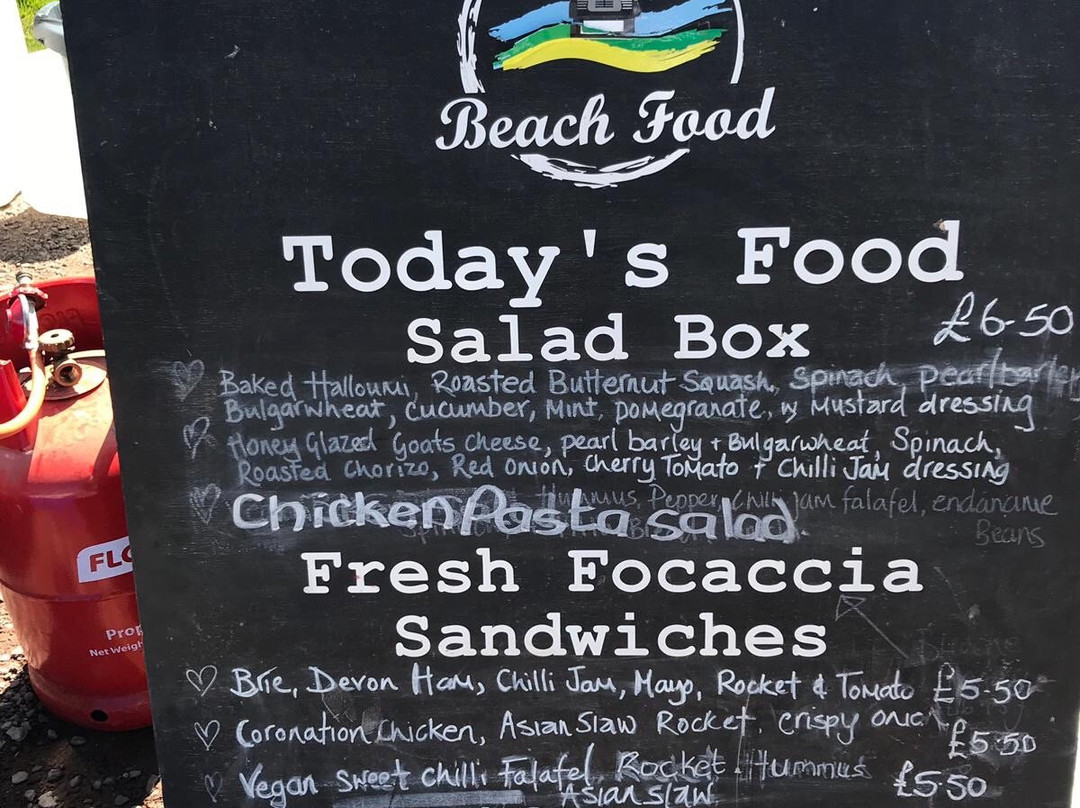 Beach Food
Today's Food
Salad Box £6-50
Baked Halloumi, Roasted Butternut Squash, Spinach, pearl barley
Bulgarwheat, cucumber, Mint, pomegranate, w Mustard dressing
Honey Glazed Goats Cheese, pearl barley + Bulgarwheat, Spinach,
Roasted Chorizo, Red Onion, Cherry Tomato + Chilli Jam dressing
Hummus, Pepper, Chilli jam falafel, endamame
Chicken Pasta salad Beans
Fresh Focaccia
Sandwiches
Brie, Devon Ham, Chilli Jam, Mayo, Rocket & Tomato £5-50
Coronation Chicken, Asian Slaw Rocket, crispy onion £5.50
Vegan sweet chilli Falafel Rocket Hummus £5.50
Asian slaw
FLO
Prop
Net Weigh